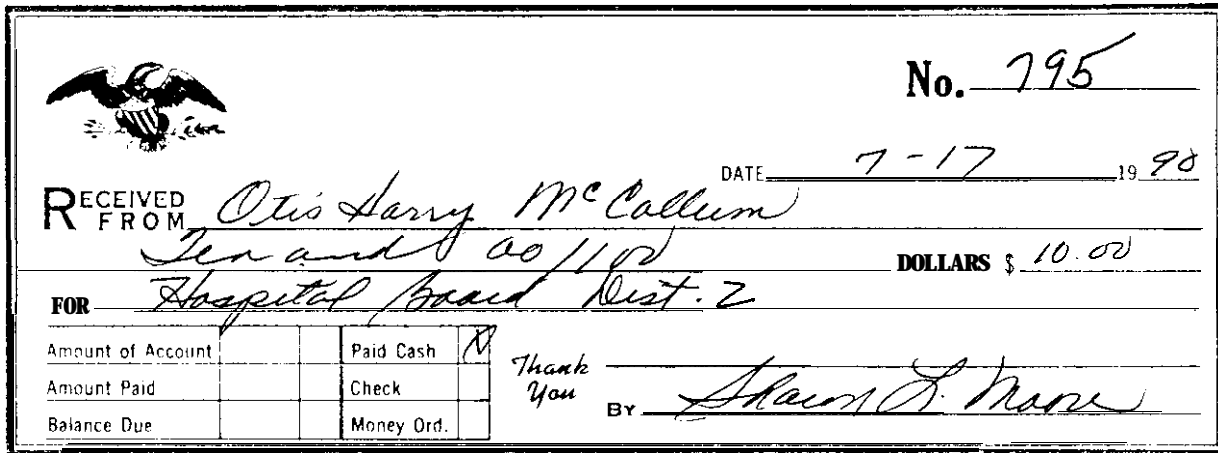 No. 795
DATE 7-17 1990
RECEIVED FROM Otis Harry McCallum
Ten and 00/100 DOLLARS $ 10.00
FOR Hospital Board Dist. 2
Amount of Account Paid Cash X
Amount Paid Check
Balance Due Money Ord.
Thank You
BY Sharon L. Moore